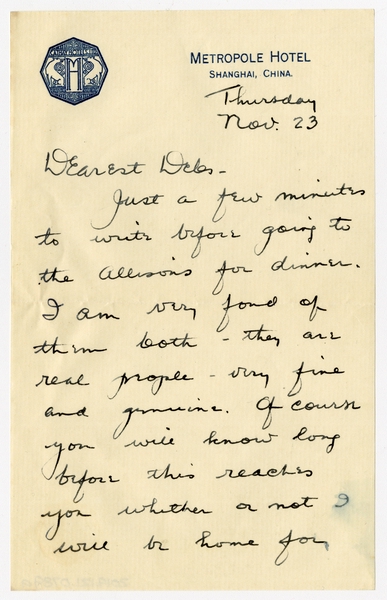 CATHAY HOTELS LTD
M
METROPOLE HOTEL
SHANGHAI, CHINA.
Thursday
Nov. 23
Dearest Debs -
Just a few minutes
to write before going to
the Allisons for dinner.
I am very fond of
them both - they are
real people - very fine
and genuine. Of course
you will know long
before this reaches
you whether or not I
will be home for